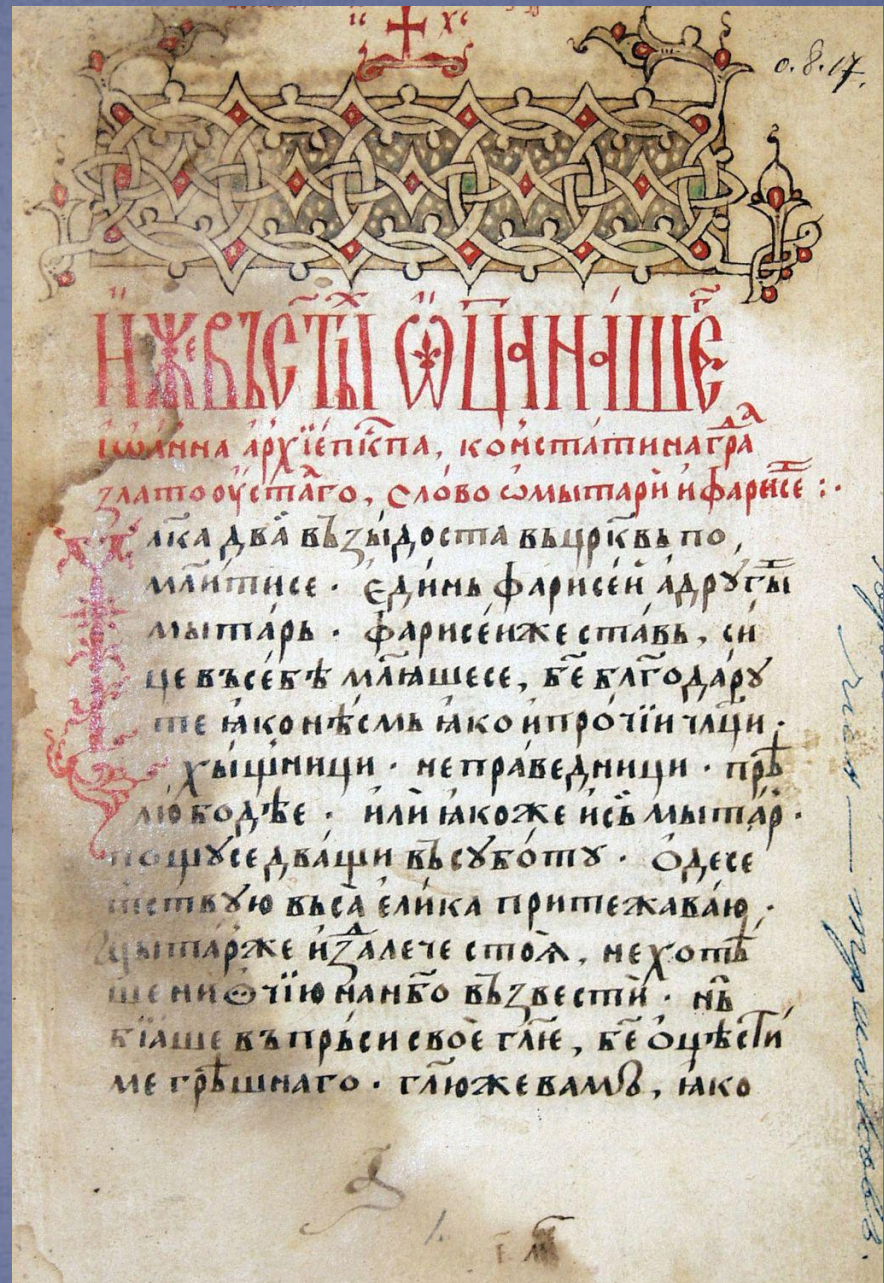 іс хс
о.8.17.
И҆́же въ ст҃ы́ⷯ ѿц҃а на́шегⷪ҇
і҆ѡа́нна а҆рхїепⷭ҇кпа, констатінагра́ⷣа
златоꙋ́стаго, сло́во ѡ҆ мытари́ и҆ фарисе :·
лка два̀ въꙁы́доста вьцрⷦ҇вь по,
мл҃и́тисе · є҆ди́нь фарисе́й а҆дрꙋгы́
мыта́рь · фарисе́йже ста́вь, си́
це въсе́бѣ мл҃ꙗ́шесе, бе҃ блг҃ода́рꙋ
те ꙗ҆конѣ́смь ꙗ҆ко и҆про́чїи чл҃ци ·
хы́щници · непра́ведници · прѣ
любодѣ́е · и҆лѝ ꙗ҆коже и҆сь́ мыта́р ·
пощꙋ́се два́щи въсꙋбо́тꙋ · О҆десе
тствꙋ́ю въса̀ є҆ли́ка притежава́ю ·
мыта́рже и҆ꙁда́лече стоѧ̀, не хотѣ́
ше ни ѻ҆чїю нанб҃о въꙁвестѝ · нь̀
бїа́ше въ пръ́си своѐ гл҃е, бе҃ о҆цѣ́сти
ме грѣ́шнаго · гл҃юже вамь, ꙗ҆ко